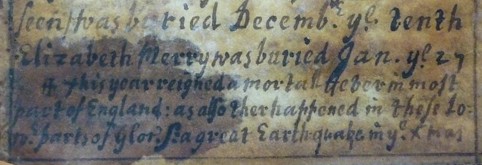 was buried Decembr. ye. tenth
Elizabeth Merry was buried Jan. ye. 27
this year reigned a mortal feber in most
part of England: as also ther happened in these
parts of glor: a great Earthquake in ye Xmas